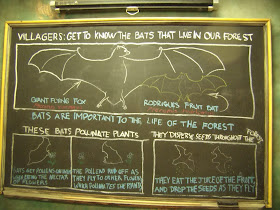 VILLAGERS: GET TO KNOW THE BATS THAT LIVE IN OUR FOREST
GIANT FLYING FOX
RODRIGUES FRUIT BAT
BATS ARE IMPORTANT TO THE LIFE OF THE FOREST
THESE BATS POLLINATE PLANTS
THEY DISPERSE SEEDS THROUGHOUT THE FOREST
BATS GET POLLEN ON
WHEN THE NECTAR
OF FLOWERS
THE POLLEN RUBS OFF AS
THEY FLY TO OTHER FLOWERS
WHICH POLLINATES THE PLANTS
THEY EAT THE JUICE OF THE FRUIT,
AND DROP THE SEEDS AS THEY FLY